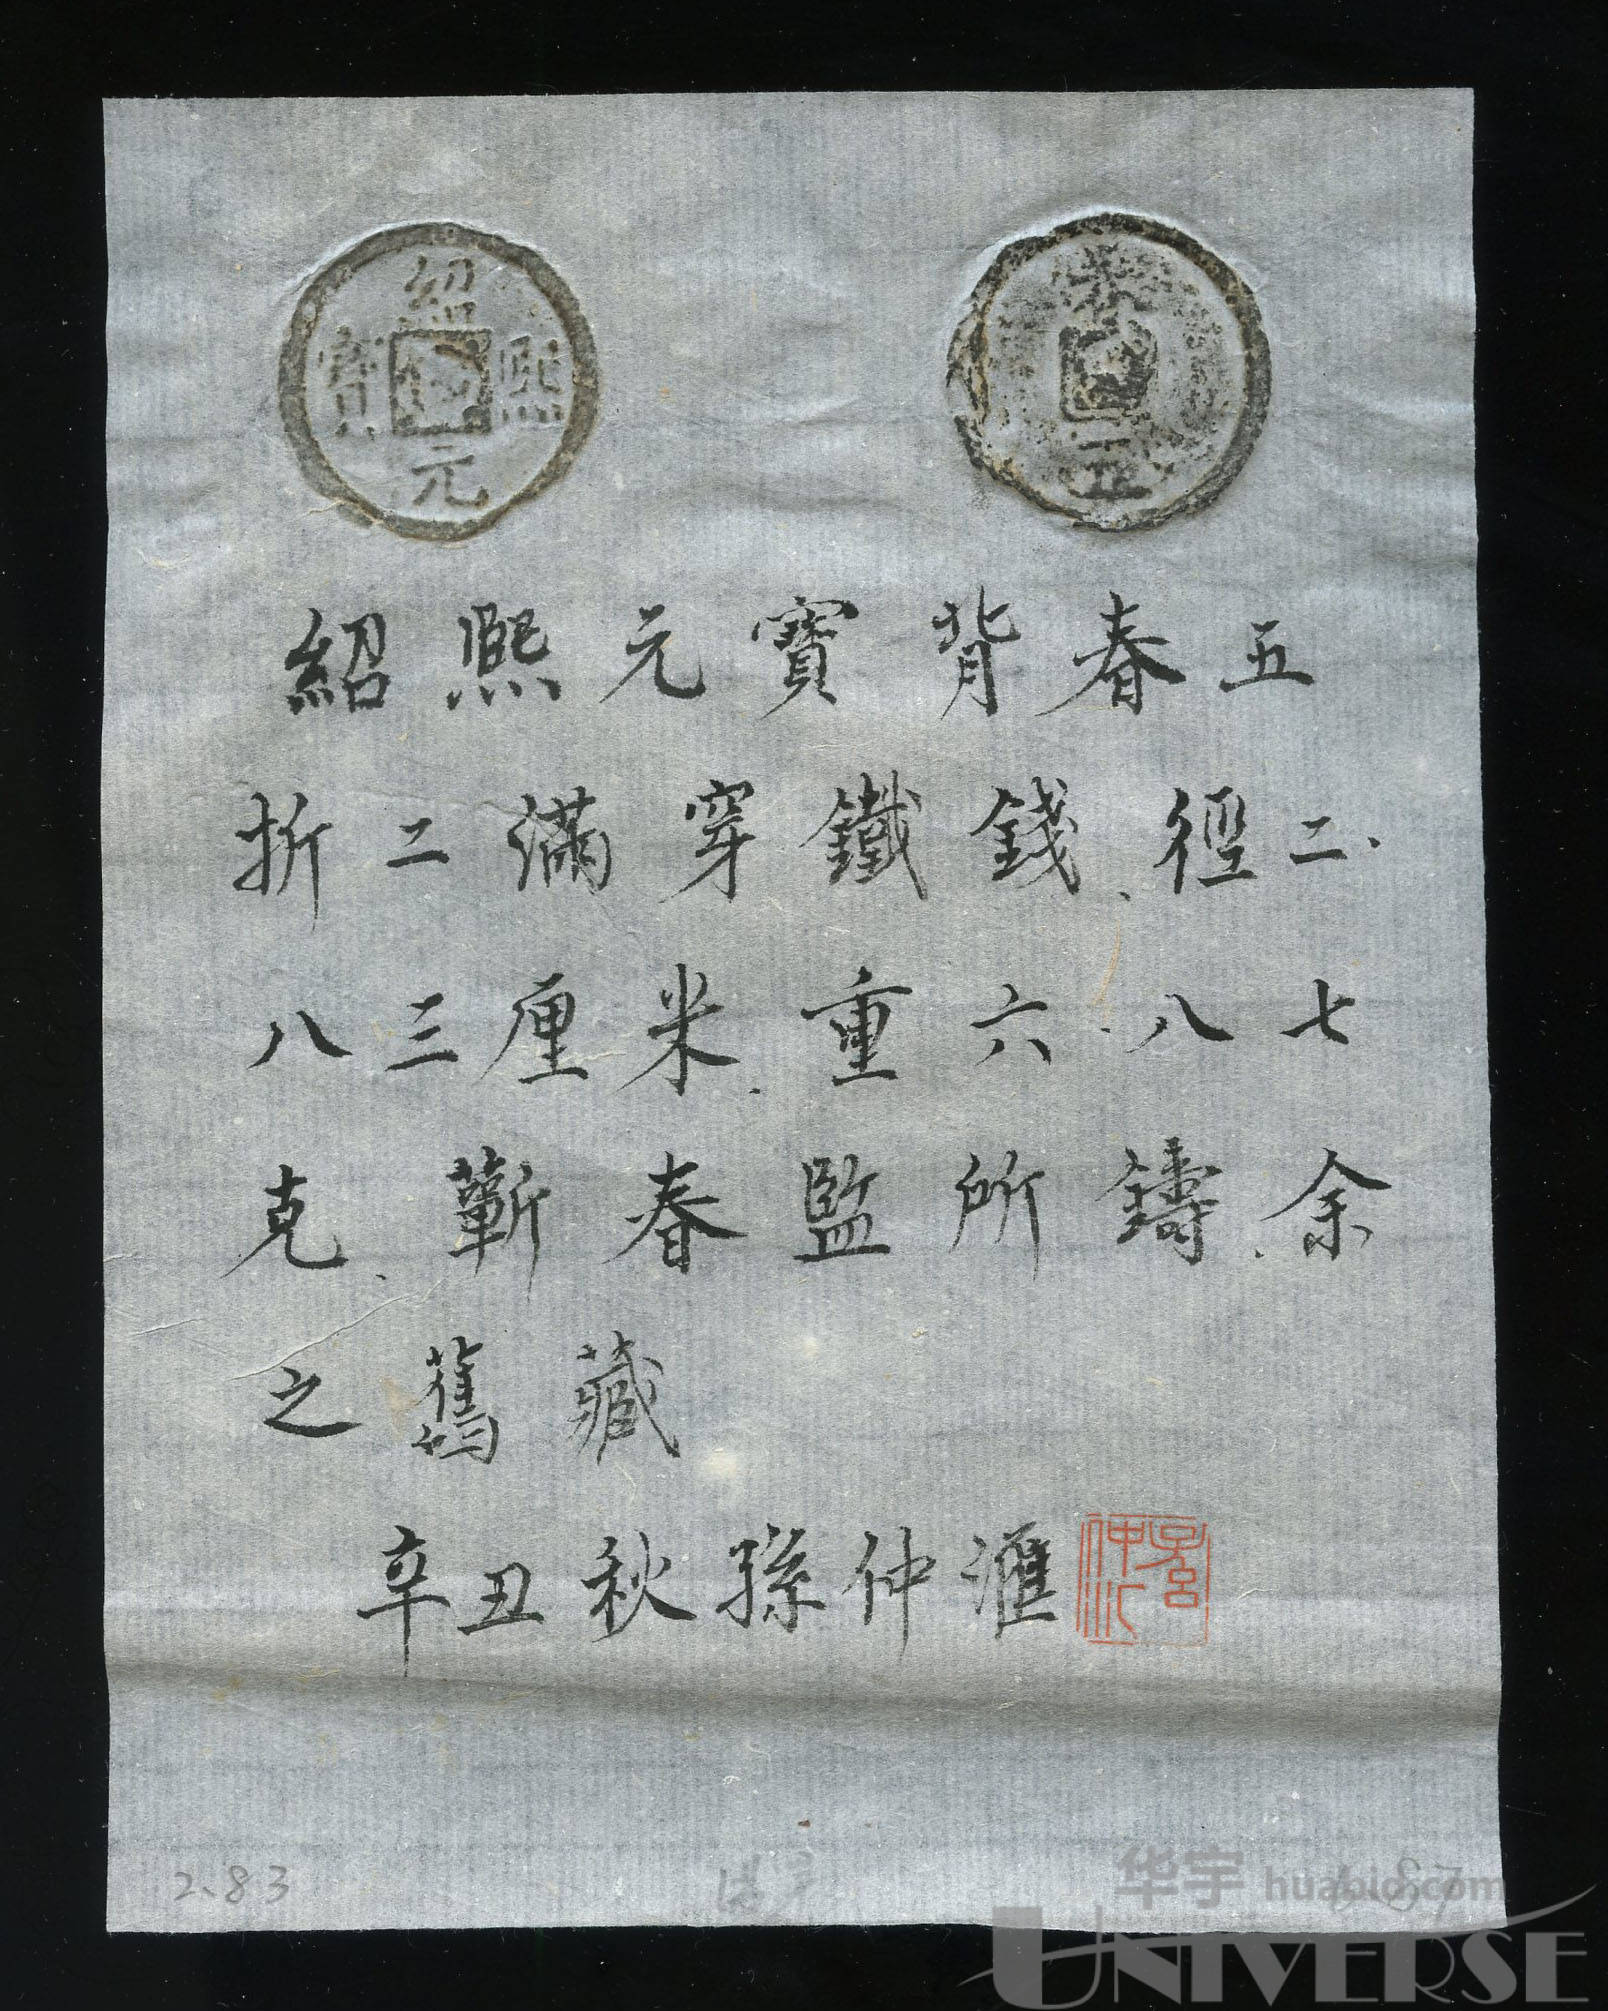 紹熙元寶
春五
紹熙元寶背春五
折二滿穿鐵錢、徑二、
八三厘米、重六、八七
克、蘄春監所鑄、余
之舊藏
辛丑秋孫仲滙
2.83
6.87
华宇 huabid.com
UNIVERSE